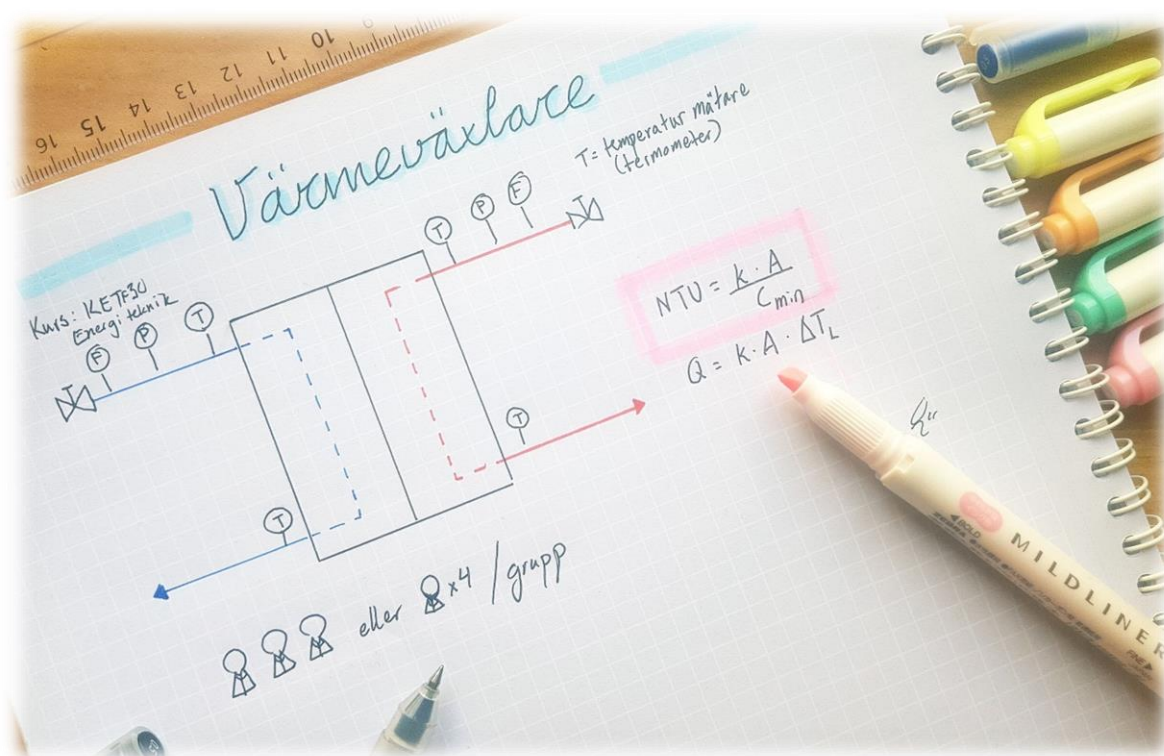 16 15 14 13 12 11 10
Värmeväxlare
T= temperatur mätare
(termometer)
Kurs: KETF30
Energiteknik
F P T
T P F
NTU = k · A / Cmin
Q = k · A · ΔTL
T
T
eller x4 / grupp
BOLD
MILDLINER
FINE